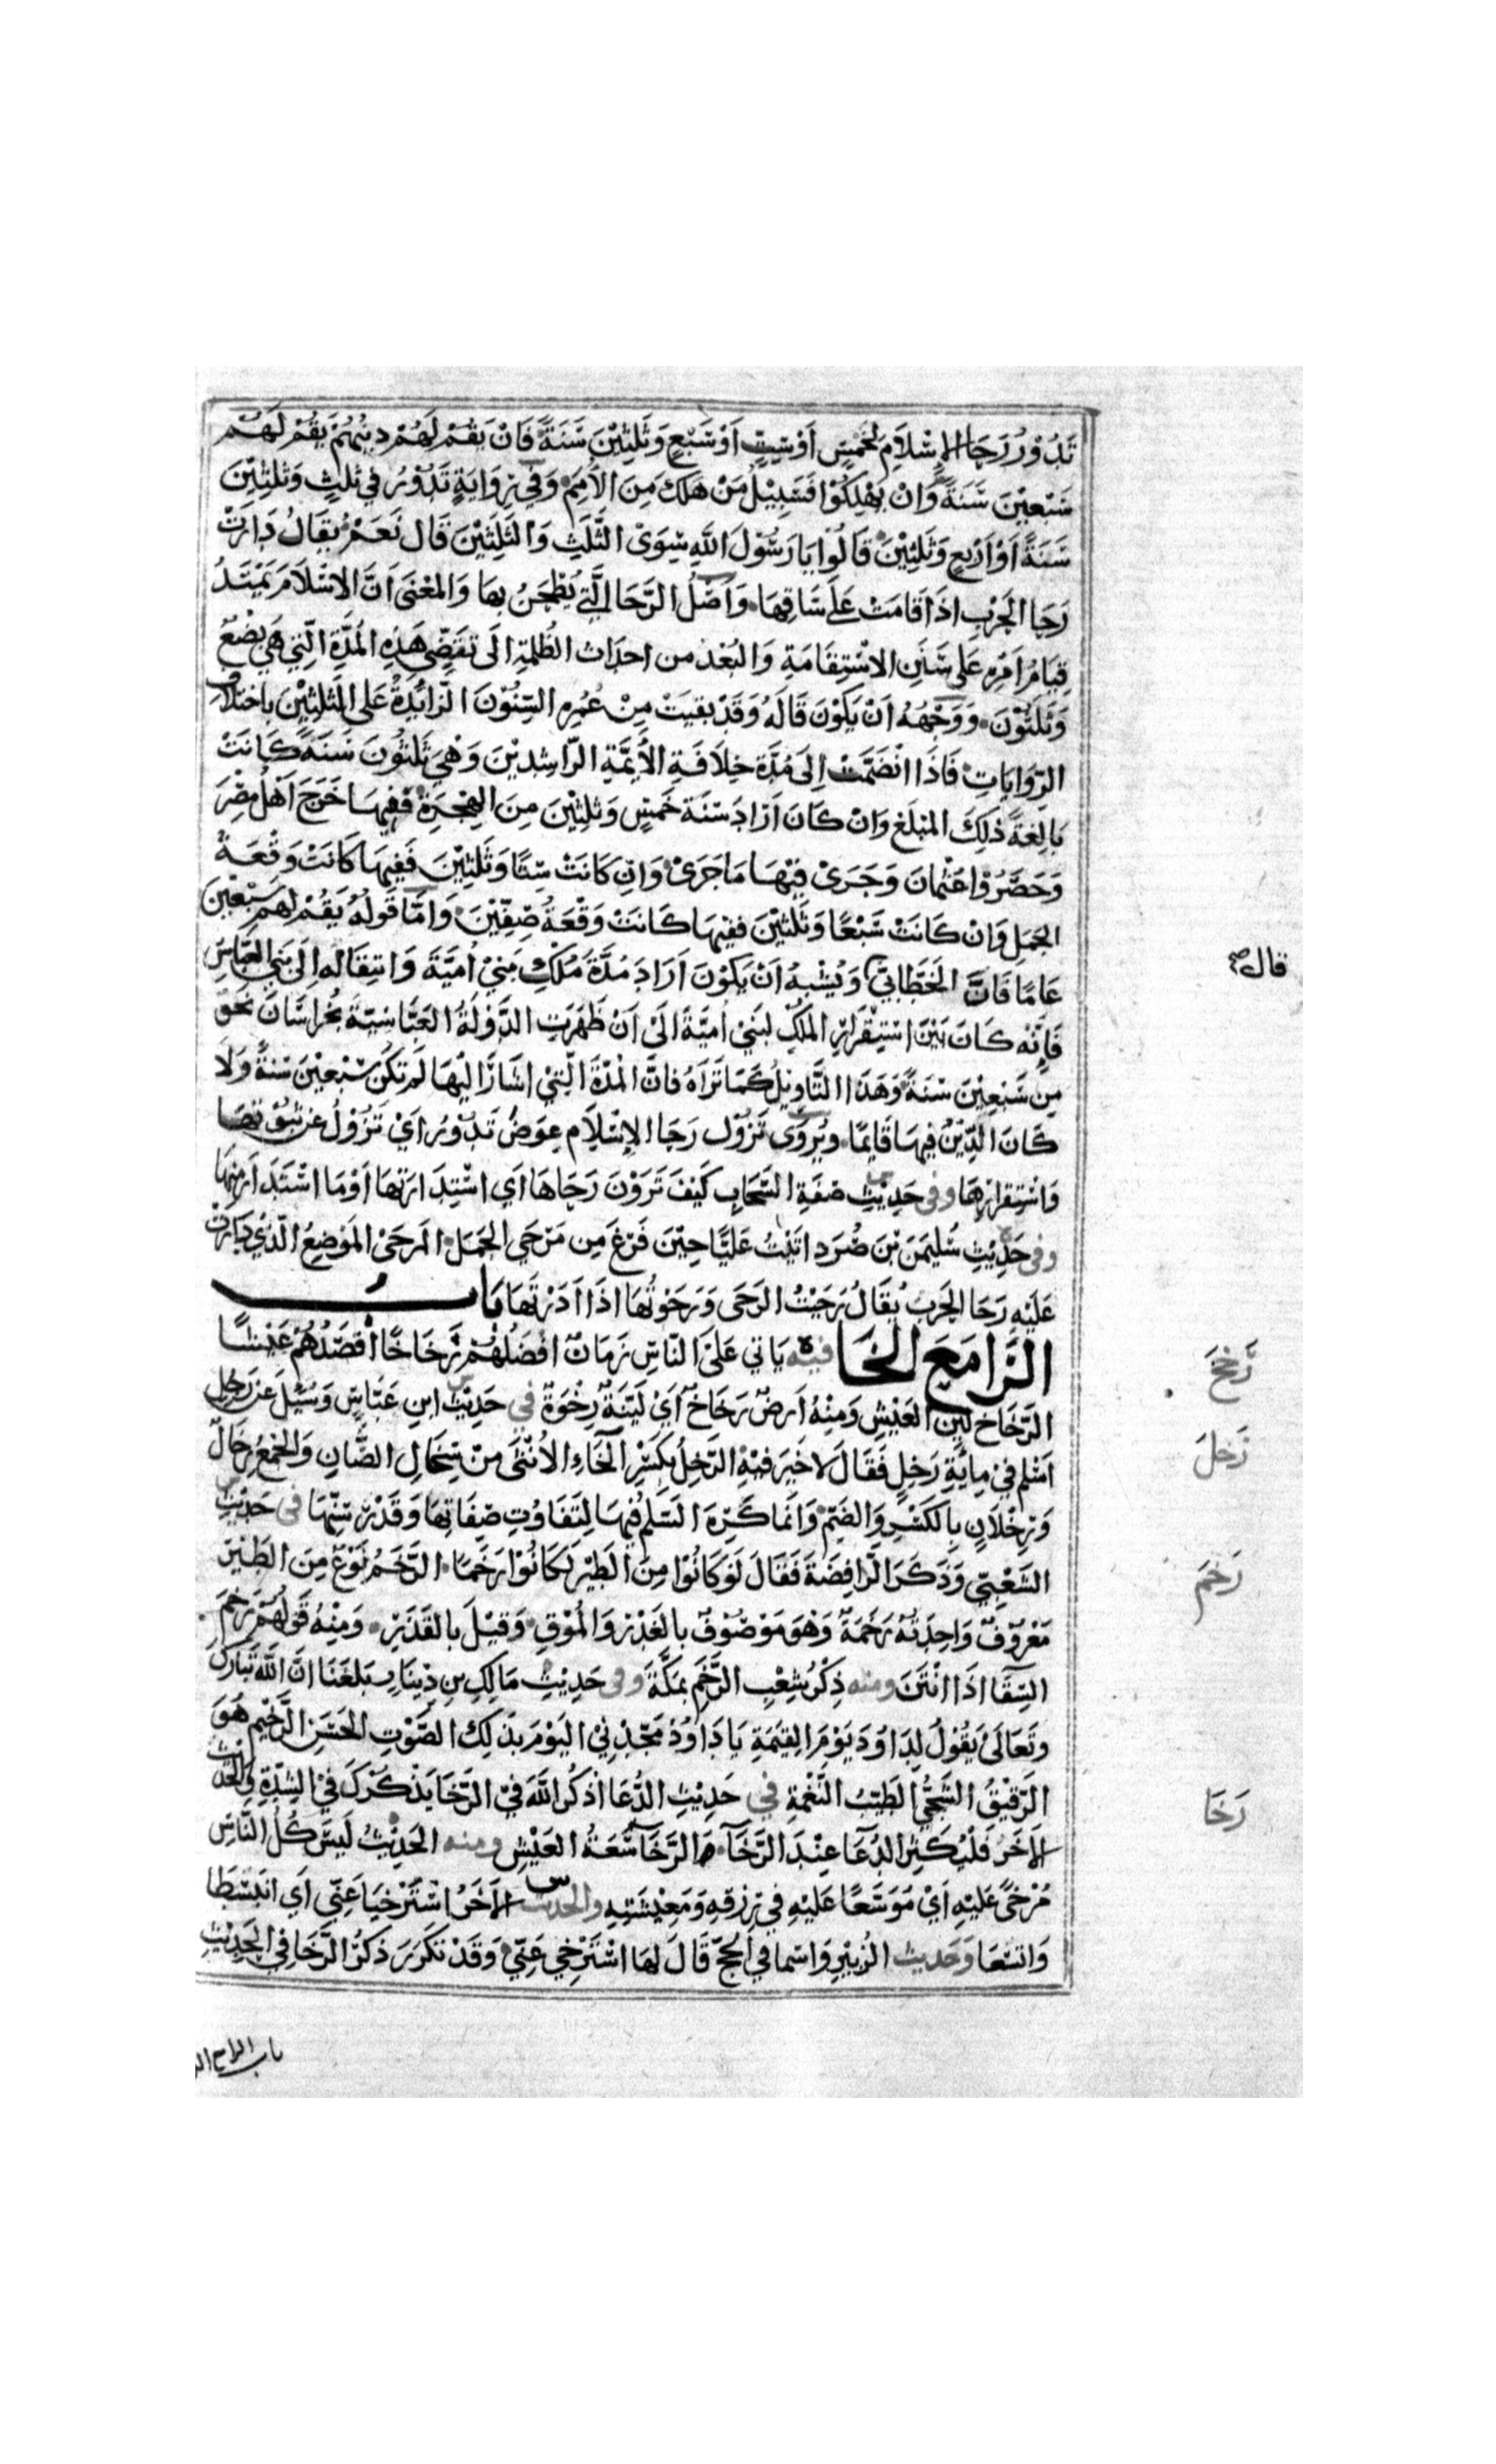 تَدُوْرُ رَحَا الإِسْلَامِ لِخَمْسٍ أَوْ سِتٍّ أَوْ سَبْعٍ وَثَلٰثِيْنَ سَنَةً فَاِنْ يَقُمْ لَهُمْ دِيْنُهُمْ يَقُمْ لَهُمْ
سَبْعِيْنَ سَنَةً وَاِنْ يَهْلِكُوْا فَسَبِيْلُ مَنْ هَلَكَ مِنَ الأُمَمِ وَفِي رِوَايَةٍ تَدُوْرُ فِي ثَلٰثٍ وَثَلٰثِيْنَ
سَنَةً أَوْ أَرْبَعٍ وَثَلٰثِيْنَ قَالُوْا يَا رَسُوْلَ اللهِ سِوَى الثَّلٰثِ وَالثَّلٰثِيْنَ قَالَ نَعَمْ يُقَالُ دَارَتْ
رَحَا الحَرْبِ اذَا قَامَتْ عَلَى سَاقِهَا وَأَصْلُ الرَّحَا الَّتِي يُطْحَنُ بِهَا وَالمَعْنَى اَنَّ الاِسْلَامَ يَمْتَدُّ
قِيَامُ اَمْرِهِ عَلَى سَنَنِ الاِسْتِقَامَةِ وَالبُعْدِ من احداث الظَّلَمَةِ الَى تَقَضِّي هَذِهِ المُدَّةِ الَّتِي هِيَ بِضْعٌ
وَثَلٰثُوْنَ وَوَجْهُهُ اَنْ يَكُوْنَ قَالَهُ وَقَدْ بَقِيَتْ مِنْ عُمُرِهِ السِّنُوْنَ الزَّائِدَةُ عَلَى الثَّلٰثِيْنَ بِاخْتِلَافِ
الرِّوَايَاتِ فَاذَا انْضَمَّتْ اِلَى مُدَّةِ خِلَافَةِ الأَئِمَّةِ الرَّاشِدِيْنَ وَهِيَ ثَلٰثُوْنَ سَنَةً كَانَتْ
بَالِغَةً ذٰلِكَ المَبْلَغَ وَاِنْ كَانَ اَرَادَ سَنَةَ خَمْسٍ وَثَلٰثِيْنَ مِنَ الهِجْرَةِ فَفِيْهَا خَرَجَ اَهْلُ مِصْرَ
وَحَصَرُوْا عُثْمَانَ وَجَرَى فِيْهَا مَا جَرَى وَاِنْ كَانَتْ سِتًّا وَثَلٰثِيْنَ فَفِيْهَا كَانَتْ وَقْعَةُ
الجَمَلِ وَاِنْ كَانَتْ سَبْعًا وَثَلٰثِيْنَ فَفِيْهَا كَانَتْ وَقْعَةُ صِفِّيْنَ وَاَمَّا قَوْلُهُ يَقُمْ لَهُمْ سَبْعِيْنَ
عَامًا فَانَّ الخَطَّابِيَّ وَيُشْبِهُ اَنْ يَكُوْنَ اَرَادَ مُدَّةَ مُلْكِ بَنِيْ اُمَيَّةَ وَانْتِقَالَهُ اِلَى بَنِي العَبَّاسِ
قال صح
فَاِنَّهُ كَانَ بَيْنَ اسْتِقْرَارِ المُلْكِ لِبَنِيْ اُمَيَّةَ الَى اَنْ ظَهَرَتِ الدَّوْلَةُ العَبَّاسِيَّةُ بِخُرَاسَانَ نَحْوٌ
مِن سَبْعِيْنَ سَنَةً وَهَذَا التَّأوِيْلُ كَمَا تَرَاهُ فَانَّ المُدَّةَ الَّتِيْ اَشَارَ اِلَيْهَا لَمْ تَكُنْ سَبْعِيْنَ سَنَةً وَلَا
كَانَ الدِّيْنُ فِيهَا قَايِمًا وَيُرْوَى تَزُوْلُ رَحَا الاِسْلَامِ عِوَضَ تَدُوْرُ اَيْ تَزُوْلُ عَن ثُبُوْتِهَا
وَاسْتِقْرَارِهَا وفى حَدِيْثِ صِفَةِ السَّحَابِ كَيْفَ تَرَوْنَ رَحَاهَا اَيِ اسْتِدَارَتَهَا اَوْ مَا اسْتَدَارَ مِنْهَا
وفى حَدِيْثِ سُلَيْمَنَ بْنِ صُرَدٍ اَتَيْتُ عَلِيًّا حِيْنَ فَرَغَ مِن مَرْحَى الجَمَلِ المَرْحَى المَوْضِعُ الَّذِي دَارَتْ
عَلَيْهِ رَحَا الحَرْبِ يُقَالُ رَحَيْتُ الرَّحَى وَرَحَوْتُهَا اذَا اَدَرْتَهَا بَابُ
الرَّا مَعَ الخَا فيه يَاتِي عَلَى النَّاسِ زَمَانٌ افْضَلُهُمْ رَخَاخًا اَقْصَدُهُمْ عَيْشًا
رَخَخَ
الرَّخَاخُ لِيْنُ العَيْشِ وَمِنْهُ اَرضٌ رَخَاخٌ اَيْ لَيِّنَةٌ رِخْوَةٌ في حَدِيْثِ ابنِ عَبَّاسٍ وَسُئِلَ عَن رَجُلٍ
رَخِلَ
اَسْلَمَ فِيْ مِايَةِ رَخِلٍ فَقَالَ لَا خَيْرَ فِيْهِ الرَّخِلُ بِكَسْرِ الخَاءِ الاُنْثَى مِنْ سِخَالِ الضَّانِ وَالجَمْعُ رِخَالٌ
وَرِخْلَانٌ بِالكَسْرِ وَالضَّمِّ وَانَّمَا كَرِهَ السَّلَمَ فِيْهَا لِتَفَاوُتِ صِفَاتِهَا وَقَدْرِ سِنِّهَا فى حَدِيْثِ
الشَّعْبِيِّ وَذَكَرَ الرَّافِضَةَ فَقَالَ لَوْ كَانُوْا مِنَ الطَّيْرِ لَكَانُوْا رَخَمًا الرَّخَمُ نَوْعٌ مِنَ الطَّيْرِ
رَخَمَ
مَعْرُوْفٌ وَاحِدَتُهُ رَخَمَةٌ وَهُوَ مَوْصُوْفٌ بِالغَدْرِ وَالمُوْقِ وَقِيْلَ بِالقَذَرِ وَمِنْهُ قَوْلُهُمْ رَخِمَ
السِّقَا اذَا انْتَنَ ومنه ذِكْرُ شِعْبِ الرَّخَمِ بِمَكَّةَ وفى حَدِيْثِ مَالِكِ بنِ دِيْنَارٍ بَلَغَنَا انَّ اللهَ تَبَارَكَ
وَتَعَالَى يَقُوْلُ لِدَاوُدَ يَوْمَ القِيٰمَةِ يَا دَاوُدُ مَجِّدْنِيْ اليَوْمَ بِذٰلِكَ الصَّوْتِ الحَسَنِ الرَّخِيْمِ هُوَ
الرَّقِيْقُ الشَّجِيُّ الطَّيِّبُ النَّغْمَةِ في حَدِيْثِ الدُّعَا اذْكُرِ اللهَ فِي الرَّخَا يَذْكُرْكَ فِي الشِّدَّةِ وَالحَدِيث
رَخَا
الاٰخَرُ فَلْيُكْثِرِ الدُّعَآ عِنْدَ الرَّخَآ الرَّخَآ سَعَةُ العَيْشِ ومنه الحَدِيْثُ لَيْسَ كُلُّ النَّاسِ
مُرْخًى عَلَيْهِ اَيْ مُوَسَّعًا عَلَيْهِ فِي رِزْقِهِ وَمَعِيْشَتِهِ والحديث الاٰخَرُ اسْتَرْخِيَا عَنِّي اَيِ انْبَسِطَا
وَاتَّسِعَا وَحَديث الزُّبَيْرِ وَاسْمَا فِي الحَجِّ قَالَ لَهَا اسْتَرْخِي عَنِّي وَقَدْ تَكَرَّرَ ذِكْرُ الرَّخَا فِي الحَدِيْثِ
باب الرا مع